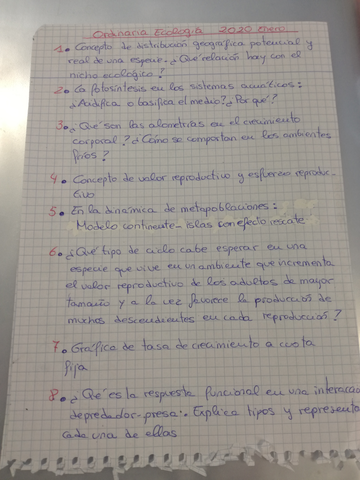 Ordinaria Ecología 2020 Enero
1. Concepto de distribución geográfica potencial y
real de una especie. ¿Qué relación hay con el
nicho ecológico?
2. La fotosíntesis en los sistemas acuáticos:
¿Acidifica o basifica el medio? ¿Por qué?
3. ¿Qué son las alometrías en el crecimiento
corporal? ¿Cómo se comportan en los ambientes
fríos?
4. Concepto de valor reproductivo y esfuerzo reproduc-
tivo
5. En la dinámica de metapoblaciones:
Modelo continente-islas con efecto rescate
6. ¿Qué tipo de ciclo cabe esperar en una
especie que vive en un ambiente que incrementa
el valor reproductivo de los adultos de mayor
tamaño y a la vez favorece la producción de
muchos descendientes en cada reproducción?
7. Gráfica de tasa de crecimiento a cuota
fija
8. ¿Qué es la respuesta funcional en una interacción
depredador-presa? Explica tipos y representa
cada una de ellas